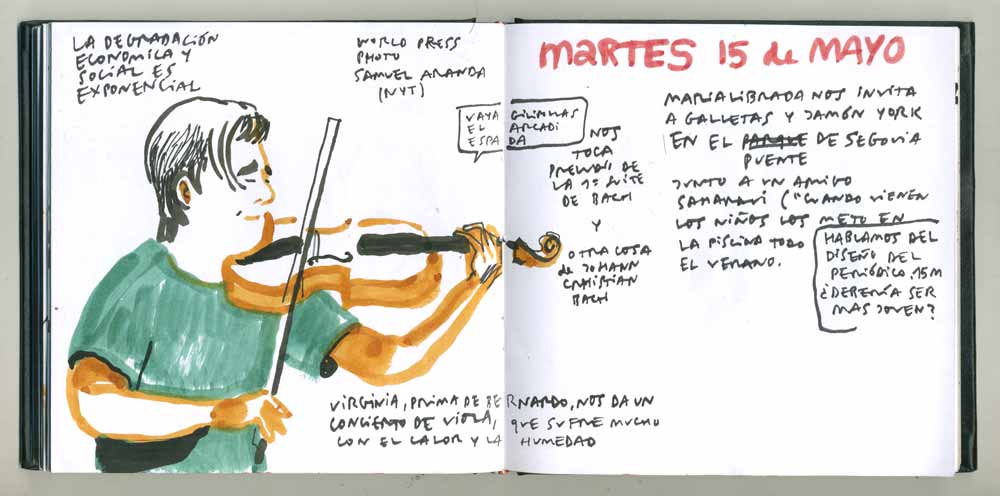 LA DEGRADACIÓN
ECONOMICA Y
SOCIAL ES
EXPONENCIAL
WORLD PRESS
PHOTO
SAMUEL ARANDA
(NYT)
VAYA GILIPOLLAS
EL ARCADI
ESPADA
NOS
TOCA
PRELUDIO DE
LA 1ª SUITE
DE BACH
Y
OTRA COSA
de JOHANN
CHRISTIAN
BACH
VIRGINIA, PRIMA DE BERNARDO, NOS DA UN
CONCIERTO DE VIOLA, QUE SUFRE MUCHO
CON EL CALOR Y LA HUMEDAD
MARTES 15 de MAYO
MARIALIBRADA NOS INVITA
A GALLETAS Y JAMÓN YORK
EN EL PARQUE DE SEGOVIA
PUENTE
JUNTO A UN AMIGO
SAHARAUI ("CUANDO VIENEN
LOS NIÑOS LOS METO EN
LA PISCINA TODO
EL VERANO.
HABLAMOS DEL
DISEÑO DEL
PERIÓDICO. 15M
¿DEBERÍA SER
MAS JOVEN?